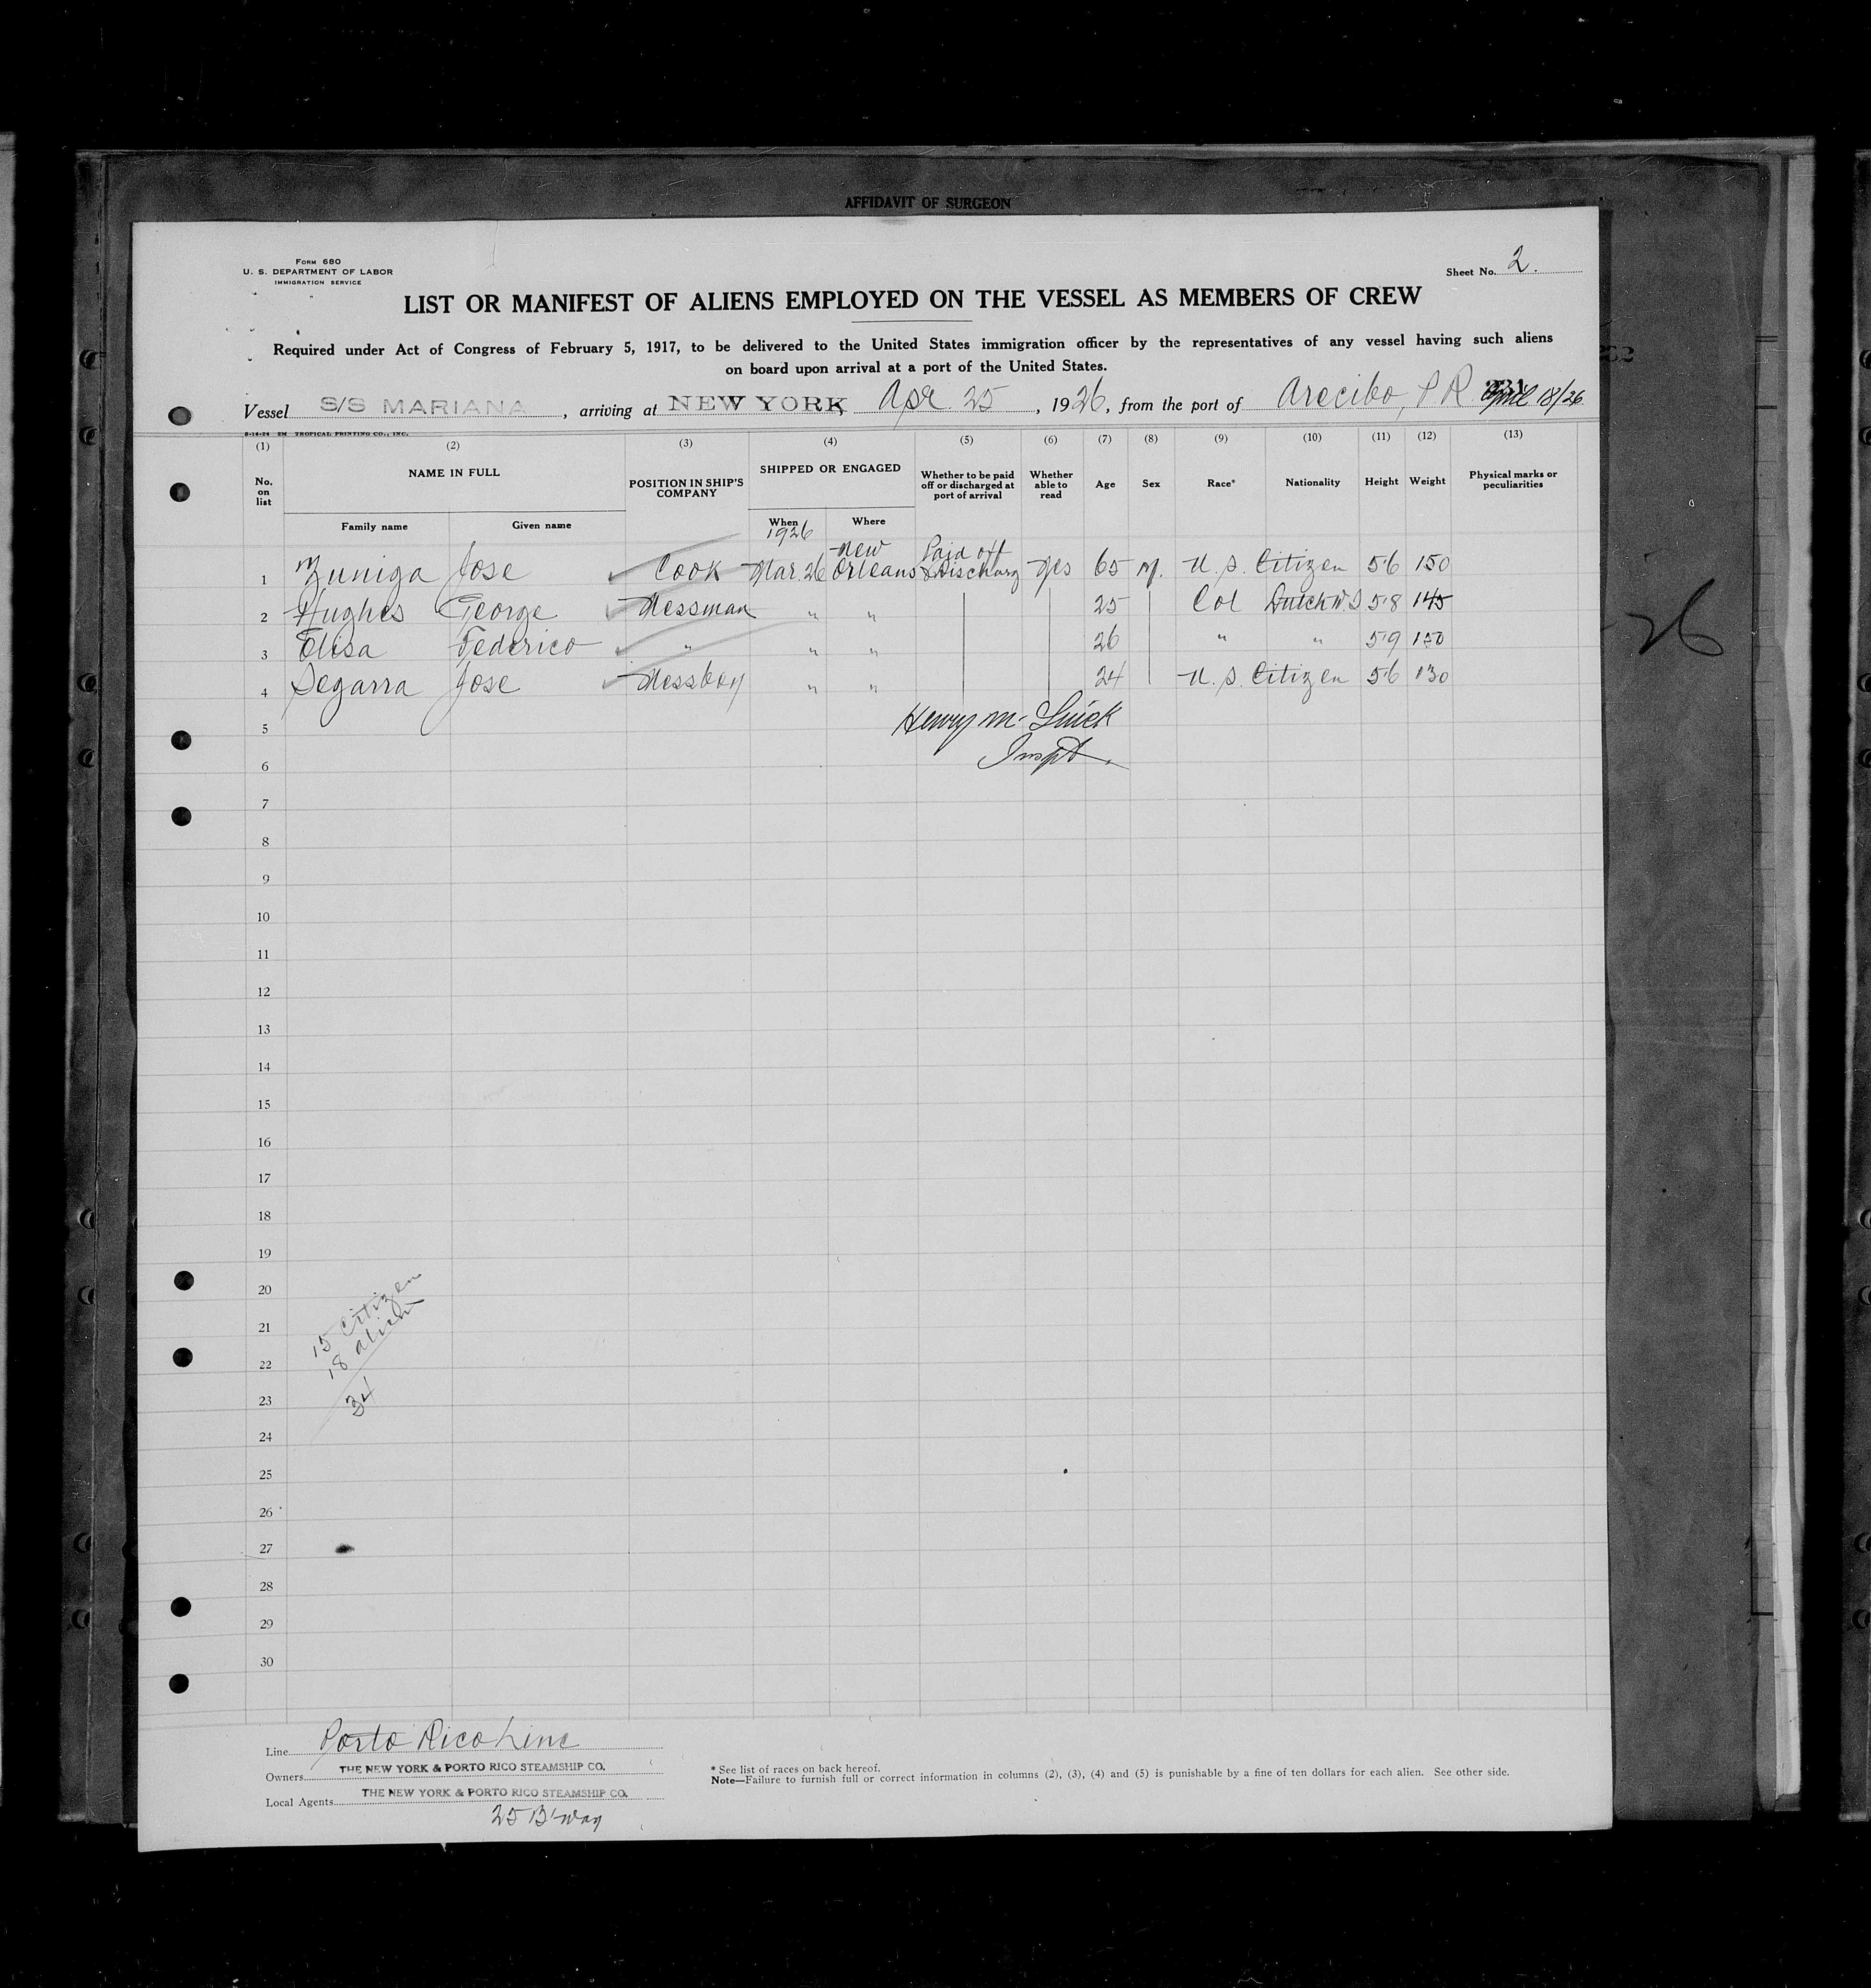 AFFIDAVIT OF SURGEON
Form 680
U. S. DEPARTMENT OF LABOR
IMMIGRATION SERVICE
Sheet No. 2.
LIST OR MANIFEST OF ALIENS EMPLOYED ON THE VESSEL AS MEMBERS OF CREW
Required under Act of Congress of February 5, 1917, to be delivered to the United States immigration officer by the representatives of any vessel having such aliens
on board upon arrival at a port of the United States.
Vessel S/S MARIANA, arriving at NEW YORK, Apr. 25, 1926, from the port of Arecibo, P.R. April 18/26
8-14-24 5M TROPICAL PRINTING CO., INC.
(1) (2) (3) (4) (5) (6) (7) (8) (9) (10) (11) (12) (13)
No. on list NAME IN FULL POSITION IN SHIP'S COMPANY SHIPPED OR ENGAGED Whether to be paid off or discharged at port of arrival Whether able to read Age Sex Race* Nationality Height Weight Physical marks or peculiarities
Family name Given name When Where
1926
1 Zuniga Jose Cook Mar. 26 New Orleans Paid off & Discharg Yes 65 M. U. S. Citizen 5'6 150
2 Hughes George Messman " " 25 Col Dutch W I 5'8 145
3 Elisa Federico " " " 26 " " 5'9 150
4 Segarra Jose Messboy " " 24 U. S. Citizen 5'6 130
5
Henry M. Quick
6
Inspt.
7
8
9
10
11
12
13
14
15
16
17
18
19
20
21
22
23
24
25
26
27
28
29
30
15 Citizen
18 alien
34
26
Line Porto Rico Line
Owners THE NEW YORK & PORTO RICO STEAMSHIP CO.
Local Agents THE NEW YORK & PORTO RICO STEAMSHIP CO.
25 B'way
* See list of races on back hereof.
Note—Failure to furnish full or correct information in columns (2), (3), (4) and (5) is punishable by a fine of ten dollars for each alien. See other side.